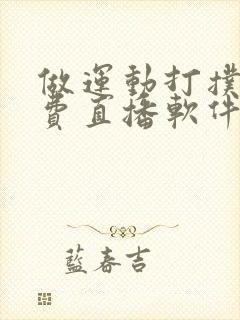 做運動打撲
費直播軟件
藍春吉